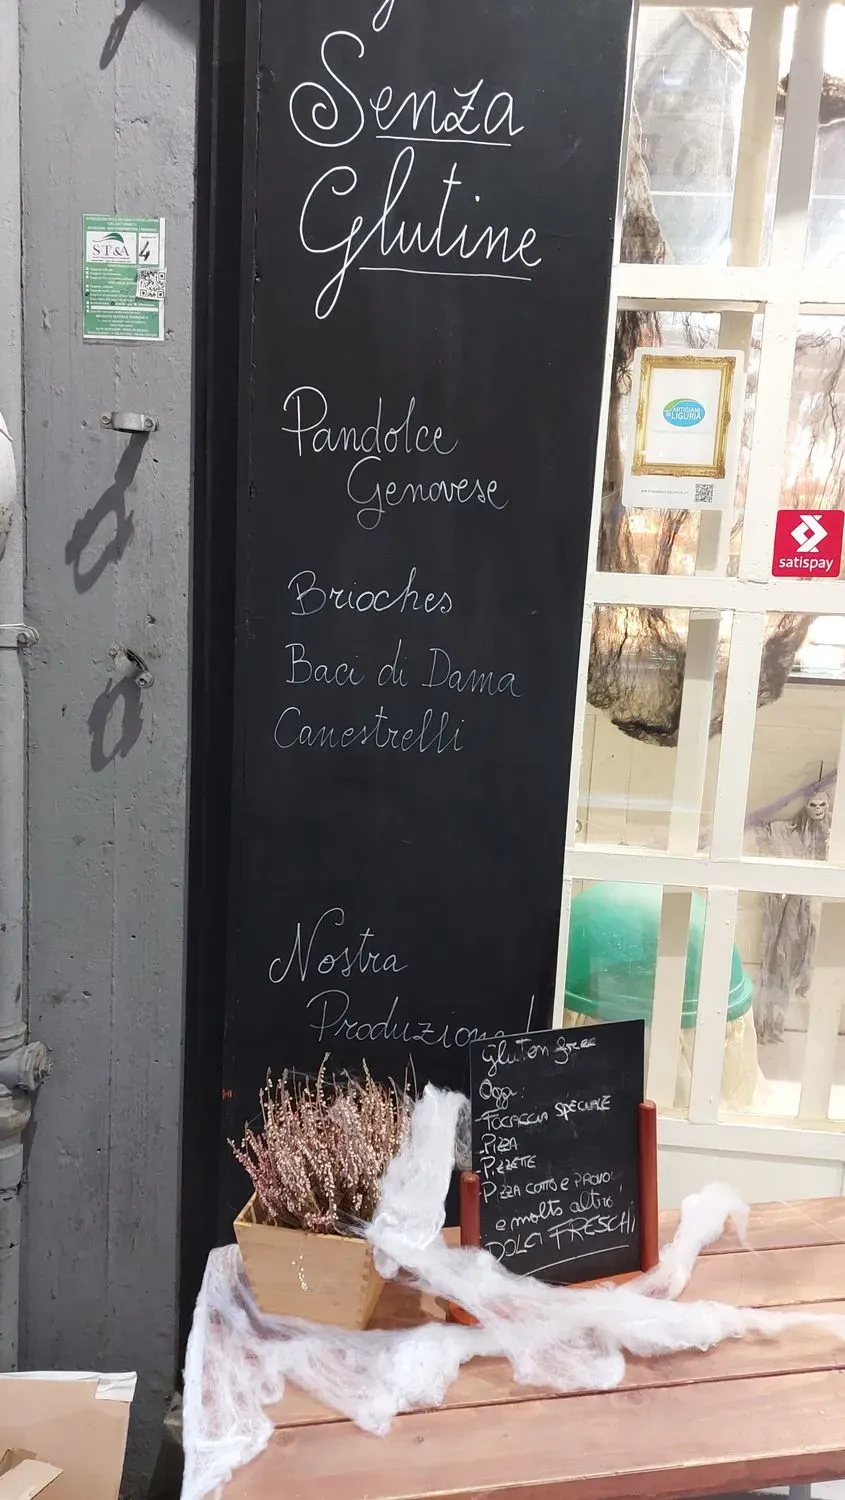 Senza
Glutine
Pandolce
Genovese
Brioches
Baci di Dama
Canestrelli
Nostra
Produzione!
Gluten free
Oggi:
-FOCACCIA SPECIALE
-PIZZA
-PIZZETTE
-PIZZA COTTO E PROVO
e molto altro
DOLCI FRESCHI
ST&A
4
ARTIGIANI
IN LIGURIA
satispay